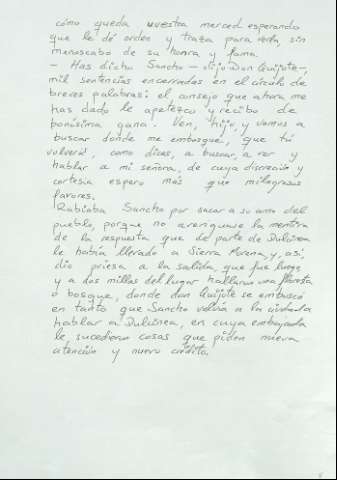 cómo queda vuestra merced esperando
que le dé orden y traza para verla, sin
menoscabo de su honra y fama.
– Has dicho Sancho – dijo Don Quijote –,
mil sentencias encerradas en el círculo de
breves palabras: el consejo que ahora me
has dado le apetezco y recibo de
bonísima gana. Ven, hijo, y vamos a
buscar donde me embosque, que tú
volverás, como dices, a buscar, a ver y
hablar a mi señora, de cuya discreción y
cortesía espero más que milagrosos
favores.
Rabiaba Sancho por sacar a su amo del
pueblo, porque no averiguase la mentira
de la respuesta que de parte de Dulcinea
le había llevado a Sierra Morena, y, así,
dio priesa a la salida, que fue luego,
y a dos millas del lugar hallaron una floresta
o bosque, donde don Quijote se emboscó
en tanto que Sancho volvía a la ciudad a
hablar a Dulcinea, en cuya embajada
le sucedieron cosas que piden nueva
atención y nuevo crédito.